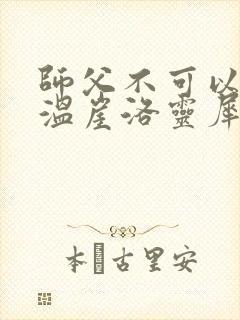 師父不可以
溫崖洛靈犀
本 古里安